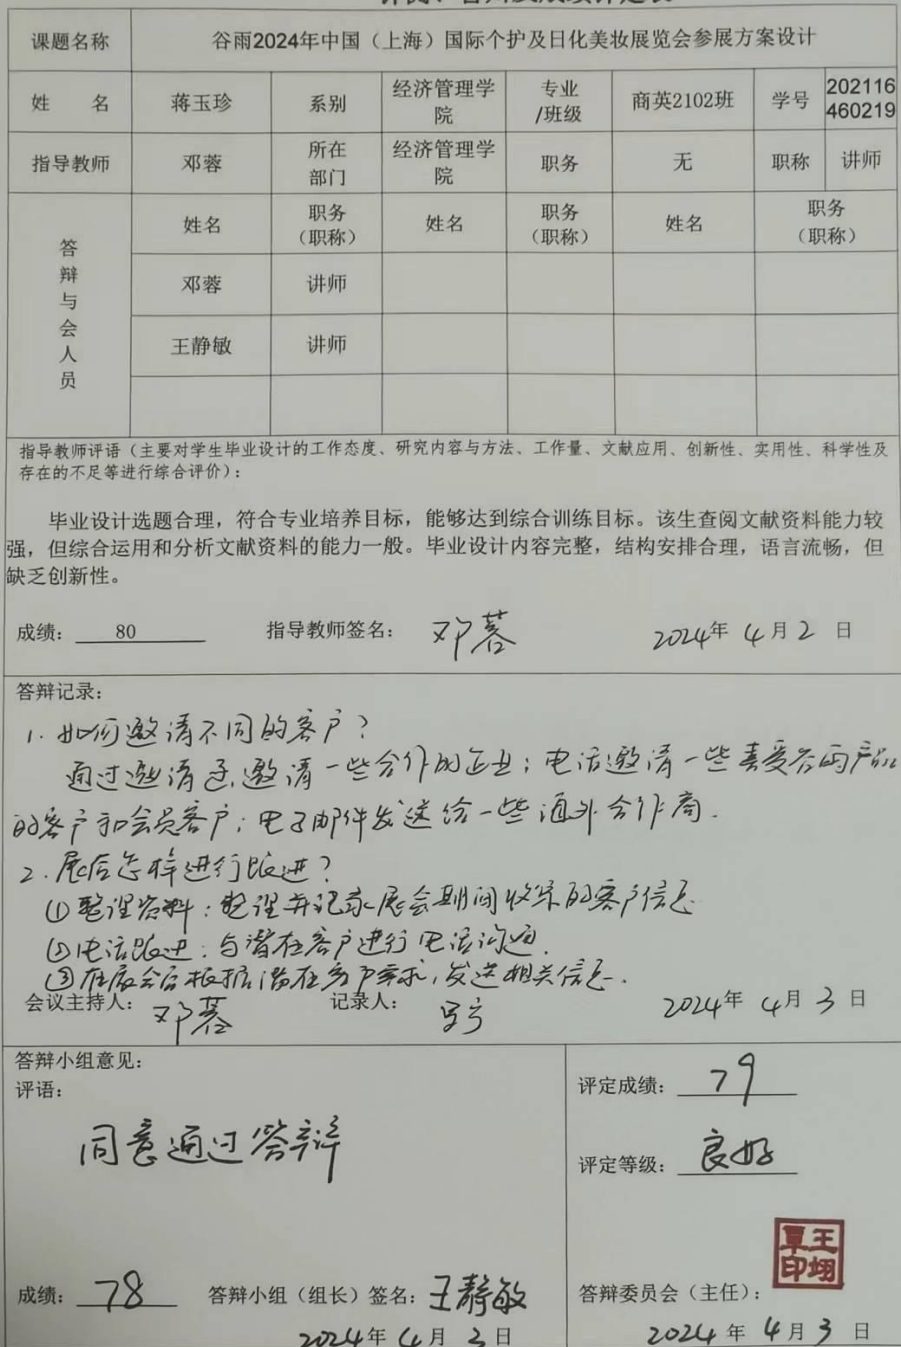 课题名称 谷雨2024年中国（上海）国际个护及日化美妆展览会参展方案设计
姓 名 蒋玉珍 系别 经济管理学院 专业/班级 商英2102班 学号 202116460219
指导教师 邓蓉 所在部门 经济管理学院 职务 无 职称 讲师
答辩与会人员
姓名 职务（职称） 姓名 职务（职称） 姓名 职务（职称）
邓蓉 讲师
王静敏 讲师
指导教师评语（主要对学生毕业设计的工作态度、研究内容与方法、工作量、文献应用、创新性、实用性、科学性及
存在的不足等进行综合评价）：
毕业设计选题合理，符合专业培养目标，能够达到综合训练目标。该生查阅文献资料能力较
强，但综合运用和分析文献资料的能力一般。毕业设计内容完整，结构安排合理，语言流畅，但
缺乏创新性。
成绩： 80 指导教师签名： 邓蓉 2024年 4月2 日
答辩记录：
1. 如何邀请不同的客户？
通过邀请函邀请一些合作的企业；电话邀请一些喜爱谷雨产品
的客户和会员客户；电子邮件发送给一些海外合作商.
2. 展后怎样进行跟进？
①整理资料：整理并记录展会期间收集的客户信息
②电话跟进：与潜在客户进行电话沟通.
③在展会后根据潜在客户需求，发送相关信息.
会议主持人： 邓蓉 记录人： 2024年 4月3 日
答辩小组意见：
评语：
同意通过答辩
成绩： 78 答辩小组（组长）签名： 王静敏
2024年 4月 3日
评定成绩： 79
评定等级： 良好
答辩委员会（主任）：
王翊覃印
2024年 4月3 日